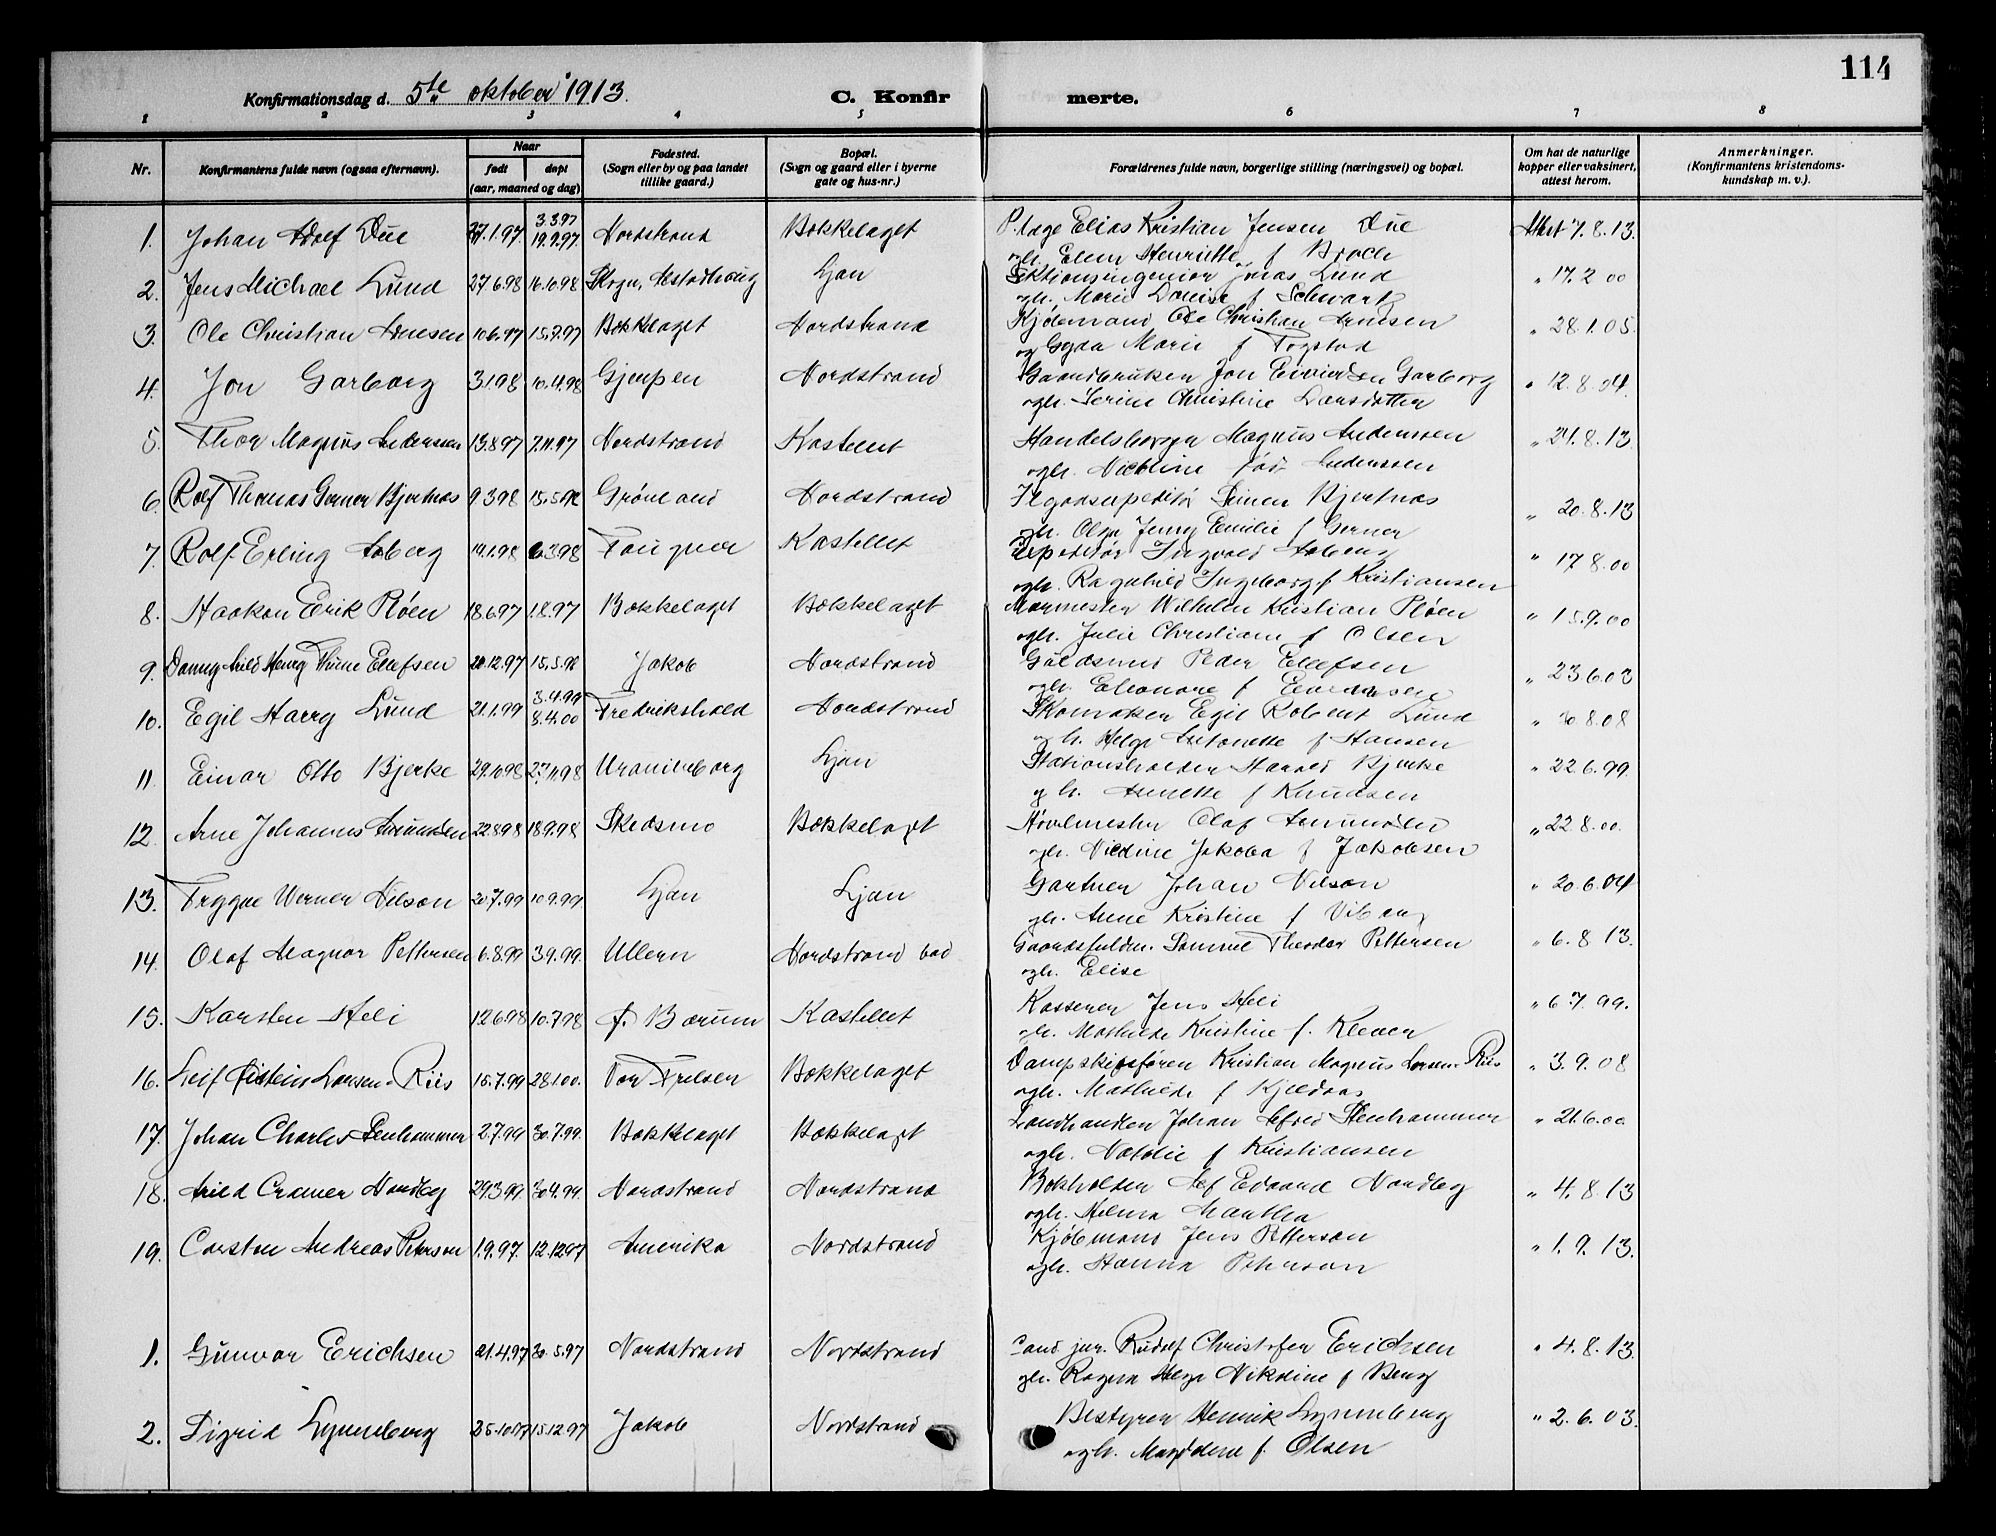 114
Konfirmationsdag d. 5te oktober 1913.
C. Konfirmerte.
1 2 3 4 5 6 7 8
Nr.
Konfirmantens fulde navn (ogsaa efternavn).
Naar
født døpt
(aar, maaned og dag)
Fødested.
(Sogn eller by og paa landet
tillike gaard.)
Bopæl.
(Sogn og gaard eller i byerne
gate og hus-nr.)
Forældrenes fulde navn, borgerlige stilling (næringsvei) og bopæl.
Om hat de naturlige
kopper eller vaksinert,
attest herom.
Anmerkninger.
(Konfirmantens kristendoms-
kundskap m. v.).
1. Johan Adolf Due 27.1.97 3.3.97 19.9.97 Nordstrand Bækkelaget P. læge Elias Kristian Jensen Due Attest 7.8.13.
ogh. Henriette f Broch
2. Jens Michael Lund 27.6.98 16.10.98 Skogn, Ljan Sektionsingeniør Jonas Lund " 17.2 00
ogh. Marie Louise f Schwartz
3. Ole Christian Arnesen 10.6.97 15.9.97 Bækkelaget Nordstrand Kjöbmand Ole Christian Arnesen " 28.1.05.
og Gyda Marie f Fogstad
4. Jon Garborg 3.1.98 10.4.98 Gjerpen Nordstrand Gaardbruker Jon Eivindsen Garborg " 12.8.04.
ogh. Serine Christine Larsdatter
5. Thor Magnus Anderssen 13.8.97 7.11.97 Nordstrand Kastellet Magnus Anderssen " 21.8.13
ogh. Nicoline född Anderssen
6. Rolf Thomas Gerner Bjertnæs 9.3.98 15.5.98 Grönland Nordstrand Ilgodsexpeditör Simen Bjertnæs " 20.8.13
ogh. Olga Jenny Emilie f Gerner
7. Rolf Erling Asberg 19.1.98 6.3.98 Fougner Kastellet Expeditör Ingvald Asberg " 17.8.00
ogh. Ragnhild Ingeborg f Kristiansen
8. Haakon Erik Plöen 18.6.97 1.8.97 Bækkelaget Bækkelaget Murmester Wilhelm Kristian Plöen " 15.9.00
ogh. Julie Christiane f Olsen
9. Danny Arild Henry Thune Ellefsen 20.12.97 15.5.98 Jakob Nordstrand Guldsmed Peder Ellefsen " 23.6.03
ogh. Eleonore f
10. Egil Harry Lund 21.1.99 3.4.99 8.4.00 Fredrikshald Nordstrand Skomaker Egil Robert Lund " 30.8.08
og h. Helga Antonette f Hansen
11. Einar Otto Bjerke 29.10.98 27.11.98 Uranienborg Ljan Stationsholder Harald Bjerke " 22.6.99.
og h. Annette f Knudsen
12. Arne Johannes Amundsen 22.8.98 18.9.98 Skedsmo Bækkelaget Hövlmester Olaf Amundsen " 22.8.00.
ogh. Nicoline Jakoba f Jakobsen
13. Trygve Werner Nilson 20.7.99 10.9.99 Ljan Ljan Gartner Johan Nilson " 20.6.04
ogh. Anne Kristine f Viberg
14. Olaf Magnar Pettersen 6.8.99 3.9.99. Ullern Nordstrand bad Samuel Theodor Pettersen " 6.8 13.
ogh. Elise
15. Karsten Heli 12.6.98 10.7.98 Ö. Bærum Kastellet Kasserer Jens Heli " 6.7.99.
ogh. Mathilde Kristine f. Klever
16. Leif Öistein Larsen-Riis 15.7.99 28.1.00. Vor Frelser Bækkelaget Dampskibsförer Kristian Magnus Larsen-Riis " 3.9.08
ogh. Mathilde f Kjeldaas
17. Johan Charles Stenhammer 2.7.99 30.7.99. Bækkelaget Bækkelaget Landhandler Johan Alfred Stenhammer " 21.6.00
ogh. Natalie f Kristiansen
18. Arild Cramer Nordby 29.3.99. 30.4.99. Nordstrand Nordstrand Bokholder Alf Edvard Nordby " 4.8.13
ogh. Helma Martha
19. Carsten Andreas Peterson 1.9.97. 12.12.97 Amerika Nordstrand Kjöbmand Jens Petterson " 1.9.13.
ogh. Hanna Peterson
1. Gunvor Erichsen 21.4.97 30.5.97 Nordstrand Nordstrand Cand jur. Rudolf Christofer Erichsen " 4.8.13.
ogh. Ragna Helga Nikoline f Berg
2. Sigrid Lynneberg 25.10.97 15.12.97 Jakob Nordstrand Bestyrer Henrik Lynneberg " 2.6.03.
ogh. Magdalene f. Olsen